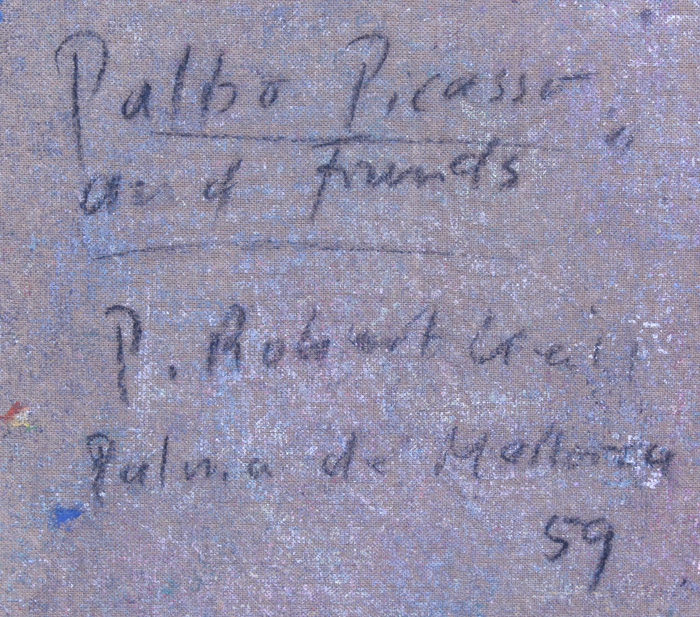 Palbo Picasso
and Friends"
P. Robert Keil
Palma de Mallorca
59